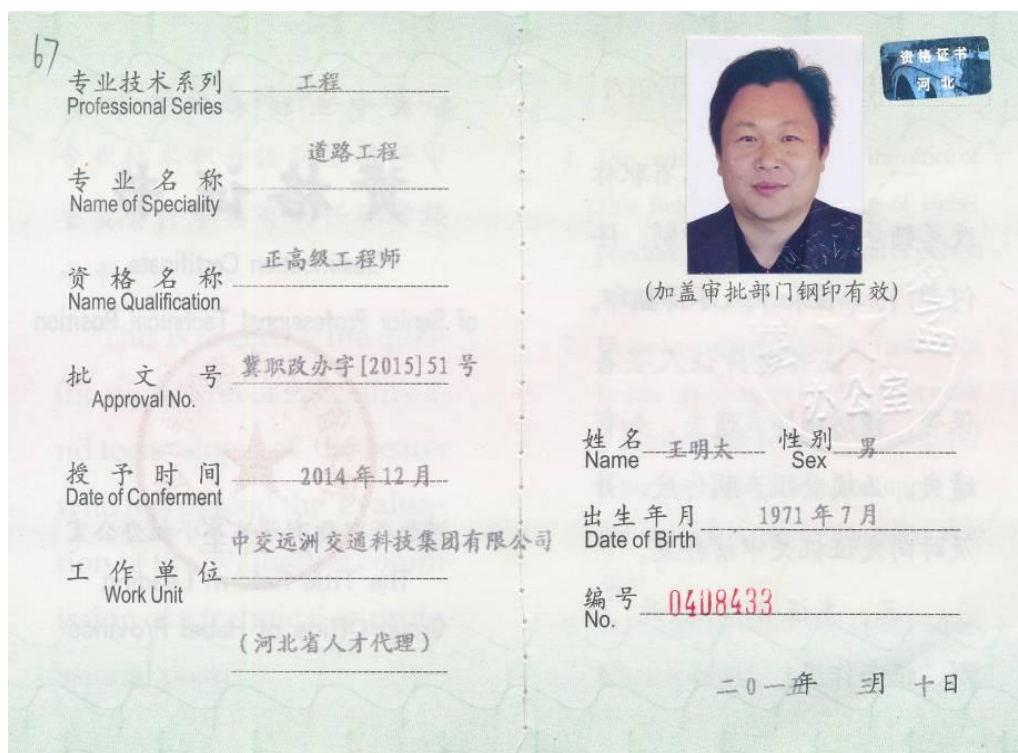 67
专业技术系列 工程
Professional Series
道路工程
专业名称
Name of Speciality
正高级工程师
资格名称
Name Qualification
批文号 冀职改办字[2015]51号
Approval No.
授予时间 2014年12月
Date of Conferment
中交远洲交通科技集团有限公司
工作单位
Work Unit
(河北省人才代理)
资格证书
河北
(加盖审批部门钢印有效)
办公室
姓名 王明太 性别 男
Name Sex
出生年月 1971年7月
Date of Birth
编号 0408433
No.
二0一 年 月十日